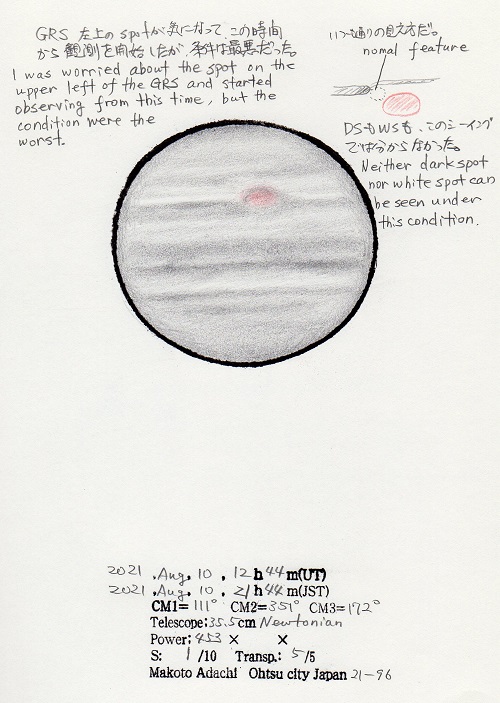 GRS 左上の spotが気になって、この時間
から観測を開始したが、条件は最悪だった。
I was worried about the spot on the
upper left of the GRS and started
observing from this time, but the
condition were the
worst.
いつも通りの見え方だ。
nomal feature
DSもWSも、このシーイング
では分からなかった。
Neither dark spot
nor white spot can
be seen under
this condition.
2021 .Aug. 10 . 12 h 44 m(UT)
2021 .Aug. 10 . 21 h 44 m(JST)
CM1= 111° CM2= 351° CM3= 172°
Telescope: 35.5cm Newtonian
Power: 453 × ×
S: 1 /10 Transp.: 5 /5
Makoto Adachi Ohtsu city Japan 21-96